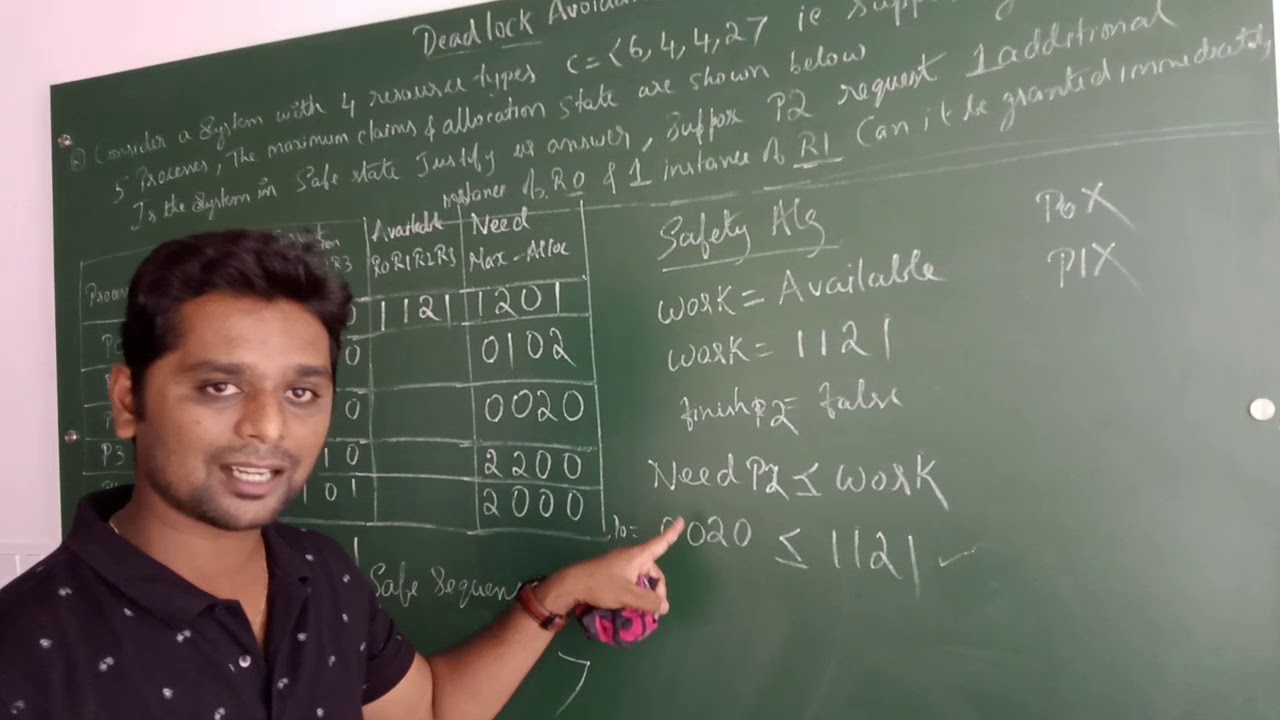 Deadlock Avoida
Consider a System with 4 resource types C=<6,4,4,2> ie supp
5 Processes, The maximum claims & allocation State are shown below
Is the System in Safe state Justify ur answer, Suppose P2 request 1 additional
instance of R0 & 1 instance of R1 Can it be granted immediately
Available
Need
R3
R0 R1 R2 R3
Max - Alloc
Process
0
1121
1201
0
0102
0
0020
P3
10
2200
101
2000
Safe Sequen
>
Safety Alg
Work = Available
Work = 1121
finish P2 = false
Need P2 ≤ Work
020 ≤ 1121 ✓
P0 X
P1 X